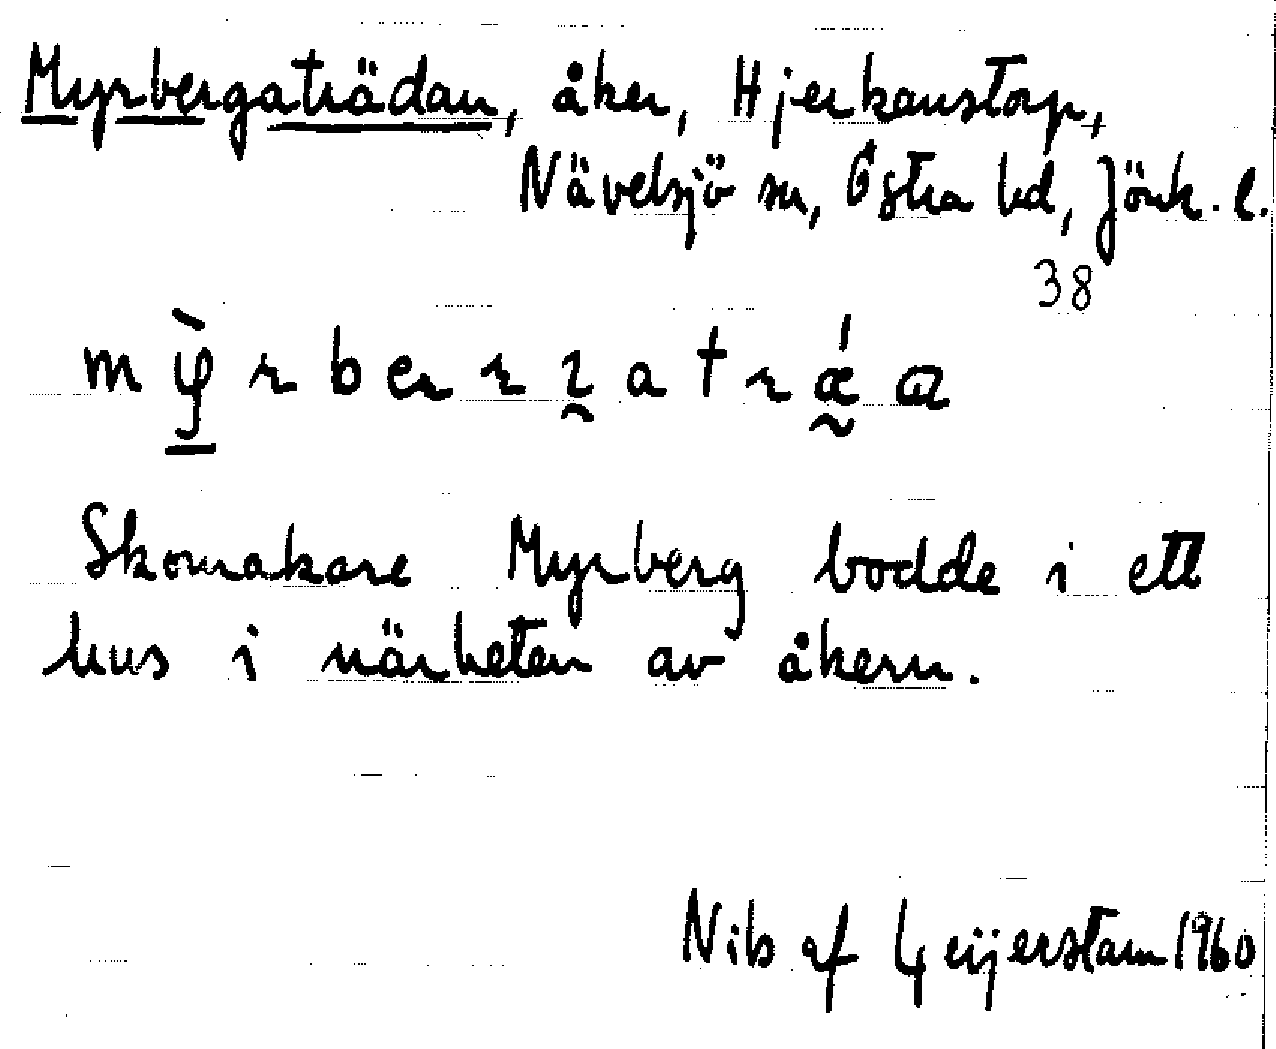 Myrbergaträdan, åker, Hjerkanstorp,
Nävelsjö sn, Östra hd, Jönk. l.
38
Skomakare Myrberg bodde i ett
hus i närheten av åkern.
Nils af Geijerstam 1960